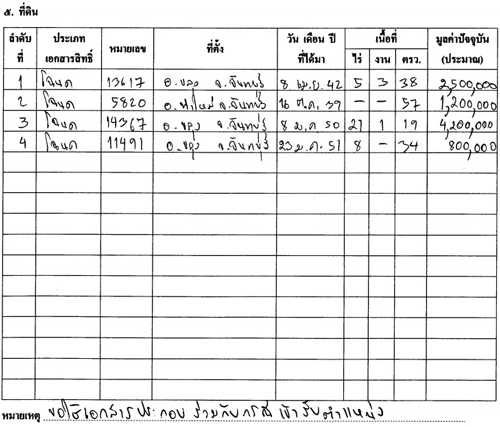 ๕. ที่ดิน
ลำดับที่ ประเภทเอกสารสิทธิ์ หมายเลข ที่ตั้ง วัน เดือน ปี ที่ได้มา เนื้อที่ ไร่ งาน ตรว. มูลค่าปัจจุบัน (ประมาณ)
1 โฉนด 13617 อ.ขลุง จ.จันทบุรี 8 เม.ย. 42 5 3 38 2,500,000
2 โฉนด 5820 อ.ท่าใหม่ จ.จันทบุรี 16 ต.ค. 39 - - 57 1,200,000
3 โฉนด 14367 อ.ขลุง จ.จันทบุรี 8 ม.ค 50 21 1 19 4,200,000
4 โฉนด 11491 อ.ขลุง จ.จันทบุรี 23 ม.ค. 51 8 - 34 800,000
หมายเหตุ ขอใช้เอกสารประกอบ ร่วมกับกรณี เข้ารับตำแหน่ง